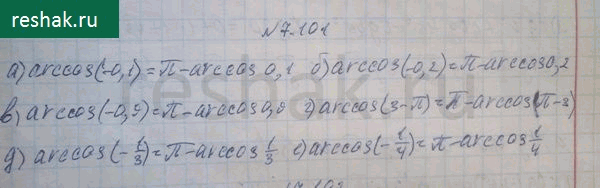 reshak.ru
№7.101
а) arccos(-0,1)=π-arccos 0,1 б) arccos(-0,2)=π-arccos 0,2
в) arccos(-0,9)=π-arccos 0,9 г) arccos(3-π)=π-arccos(π-3)
д) arccos(-1/3)=π-arccos 1/3 е) arccos(-1/4)=π-arccos 1/4